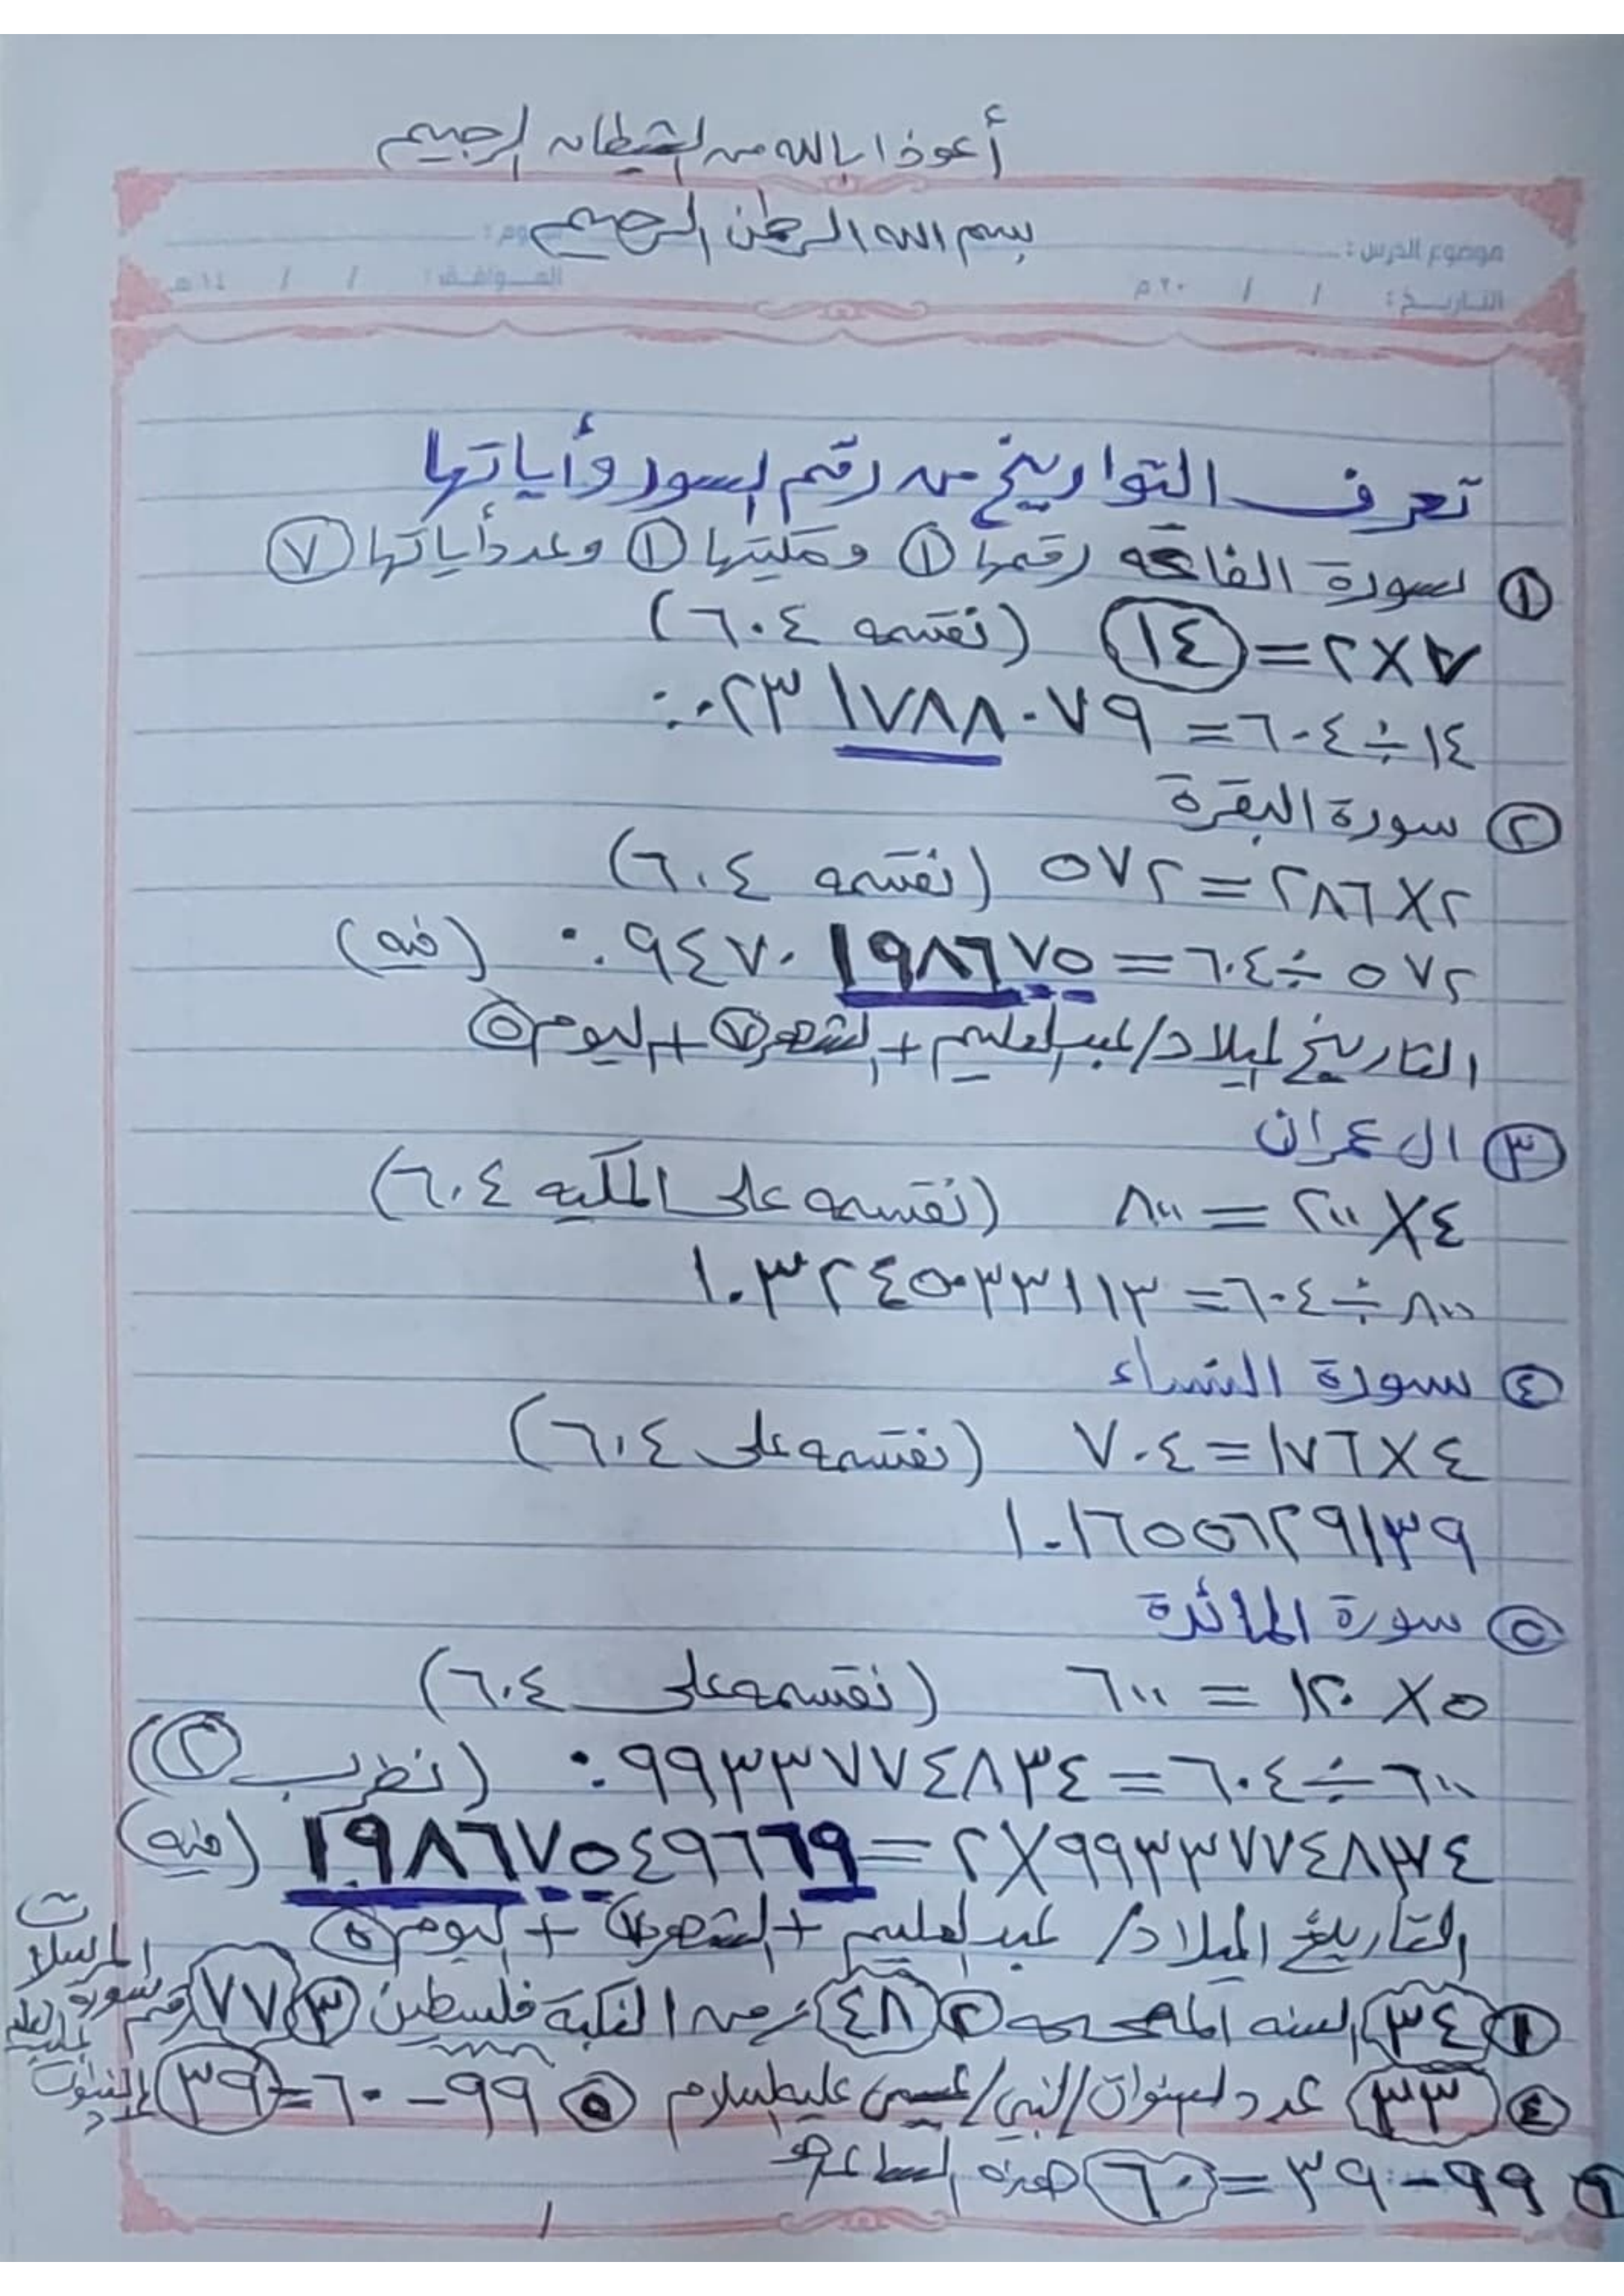 أعوذ بالله من الشيطان الرجيم
بسم الله الرحمن الرحيم
موضوع الدرس :
التاريخ : / / ٢٠ م الموافق : / / ١٤ هـ
تعرف التواريخ من رقم السور وأياتها
① سورة الفاتحه رقمها ① ومكيتها ① وعدد أياتها ⑦
٧×٢=١٤ (نقسمه ٦٠٤)
١٤÷٦٠٤=٠.٠٢٣١٧٨٨٠٧٩
② سورة البقرة
٢×٢٨٦=٥٧٢ (نقسمه ٦٠٤)
٥٧٢÷٦٠٤=٠.٩٤٧٠١٩٨٦٧٥ (فيه)
التاريخ لميلاد/عبدالعليم + الشهر٧ + اليوم٥
③ ال عمران
٤×٢٠٠=٨٠٠ (نقسمه على المكيه ٦٠٤)
٨٠٠÷٦٠٤=١.٣٢٤٥٠٣٣١١٣
④ سورة النساء
٤×١٧٦=٧٠٤ (نقسمه على ٦٠٤)
١.١٦٥٥٦٢٩١٣٩
⑤ سورة المائدة
٥×١٢٠=٦٠٠ (نقسمه على ٦٠٤)
٦٠٠÷٦٠٤=٠.٩٩٣٣٧٧٤٨٣٤ (نظرب ②)
٩٩٣٣٧٧٤٨٣٤×٢=١٩٨٦٧٥٤٩٦٦٩ (فيه)
التاريخ الميلاد/ عبدالعليم + الشهر٧ + اليوم٥
① ٣٤ السنه ② ٤٨ زمن النكبة فلسطين ③ ٧٧ رقم سورة المرسلات
④ ٣٣ عدد سنوات/النبي/عيسى عليه السلام ⑤ ٩٩-٦٠=٣٩
٦ ٩٩-٣٩=٦٠ هذه الساعه
١